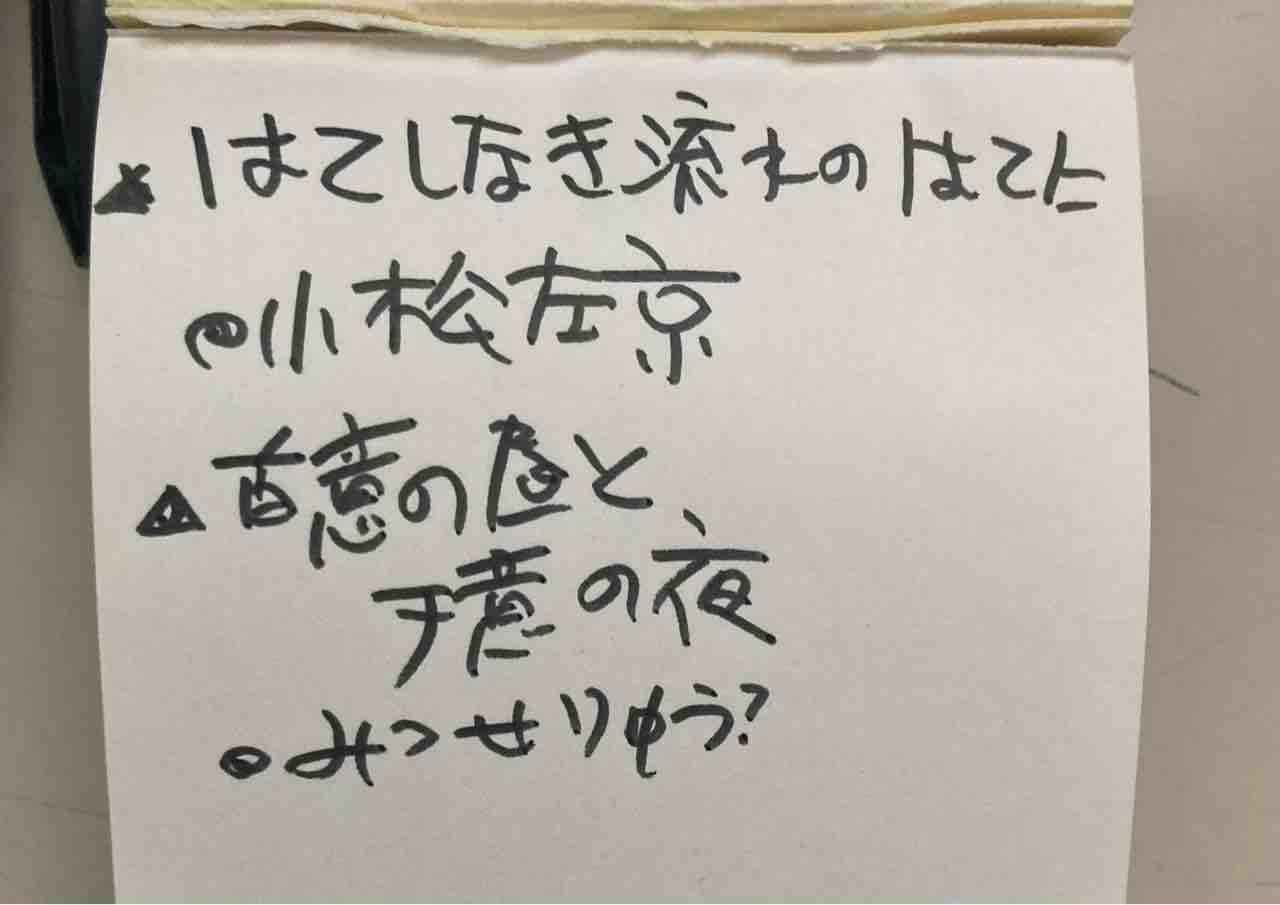 ▲ はてしなき流れのはてに
●小松左京
▲ 百意の昼と、
千意の夜
●みつせりゅう?